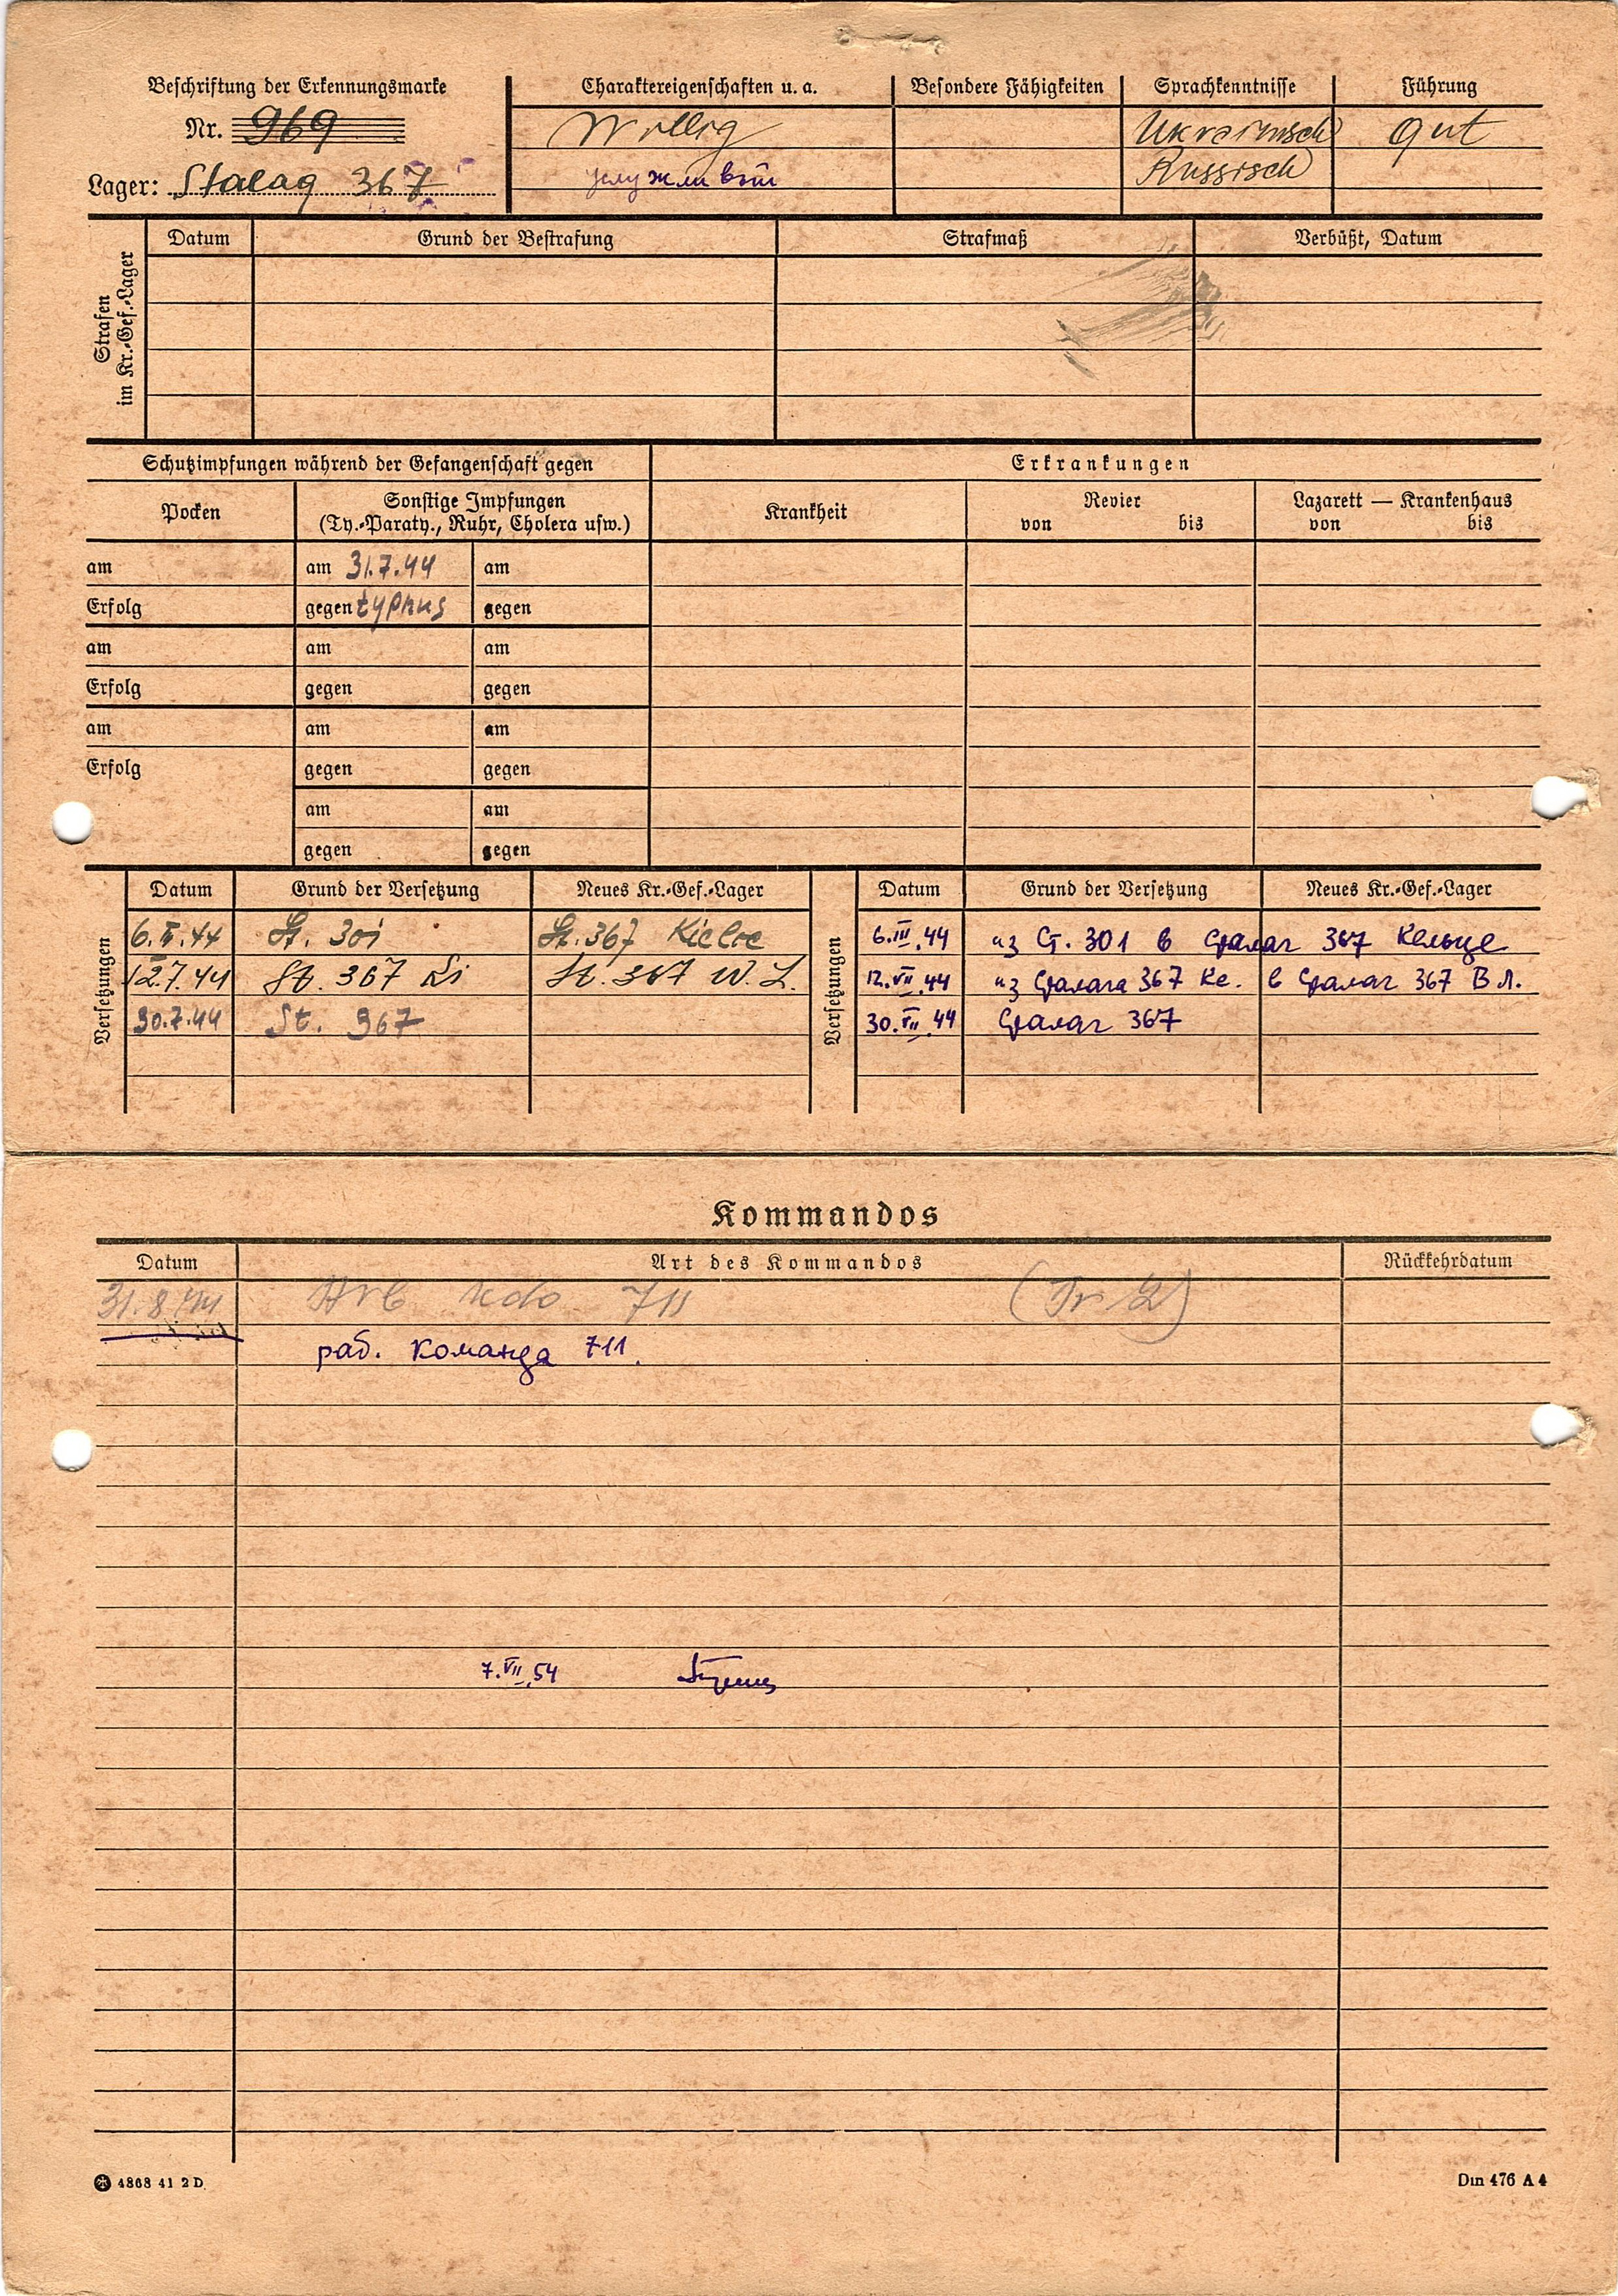 Beschriftung der Erkennungsmarke
Nr. 969
Lager: Stalag 367
Charaktereigenschaften u. a.
Willig
услужливый
Besondere Fähigkeiten
Sprachkenntnisse
Ukrainisch
Russisch
Führung
gut
Strafen im Kr.-Gef.-Lager
Datum Grund der Bestrafung Strafmaß Verbüßt, Datum
Schutzimpfungen während der Gefangenschaft gegen
Erkrankungen
Pocken
Sonstige Impfungen
(Ty.-Paraty., Ruhr, Cholera usw.)
Krankheit
Revier
von bis
Lazarett — Krankenhaus
von bis
am am 31.7.44 am
Erfolg gegen typhus gegen
am am am
Erfolg gegen gegen
am am am
Erfolg gegen gegen
am am
gegen gegen
Versetzungen
Datum Grund der Versetzung Neues Kr.-Gef.-Lager
6.III.44 St. 301 St. 367 Kielce
12.7.44 St. 367 St. 367 W. L.
30.7.44 St. 367
Versetzungen
Datum Grund der Versetzung Neues Kr.-Gef.-Lager
6.III.44 из Ст. 301 в сталаг 367 Кельце
12.VII.44 из Сталага 367 Ке. в Сталаг 367 В Л.
30.VII.44 Сталаг 367
Kommandos
Datum Art des Kommandos Rückkehrdatum
31.8.44 Arb Kdo 711
раб. команда 711.
7.VII.54
4868 41 2 D
Din 476 A 4